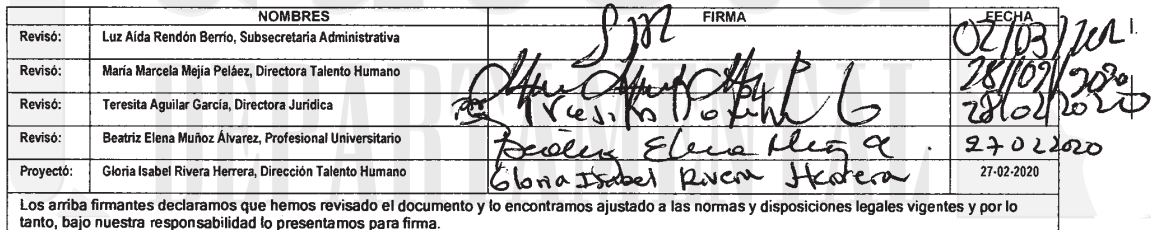 NOMBRES FIRMA FECHA
Revisó: Luz Aída Rendón Berrío, Subsecretaria Administrativa 02/03/
Revisó: María Marcela Mejía Peláez, Directora Talento Humano 28/02/2020
Revisó: Teresita Aguilar García, Directora Jurídica 28/02/2020
Revisó: Beatriz Elena Muñoz Álvarez, Profesional Universitario Beatriz Elena Muñoz A. 27022020
Proyectó: Gloria Isabel Rivera Herrera, Dirección Talento Humano Gloria Isabel Rivera Herrera 27-02-2020
Los arriba firmantes declaramos que hemos revisado el documento y lo encontramos ajustado a las normas y disposiciones legales vigentes y por lo
tanto, bajo nuestra responsabilidad lo presentamos para firma.